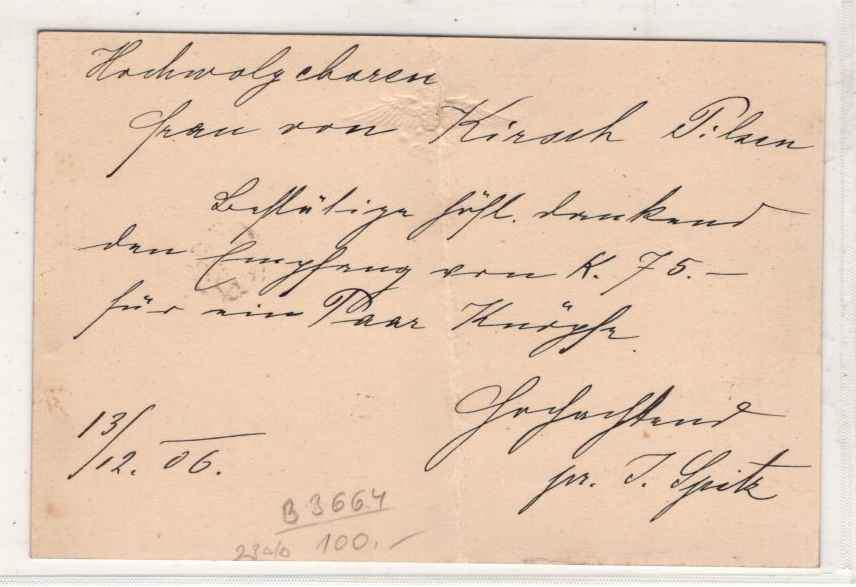 Hochwolgeboren
Frau von Kirsch Pilsen
Bestätige höfl. dankend
den Empfang von K. 75.–
für ein Paar Knöpfe.
Hochachtend
13/12. 06.
pr. J. Spitz
B 3664
100.–